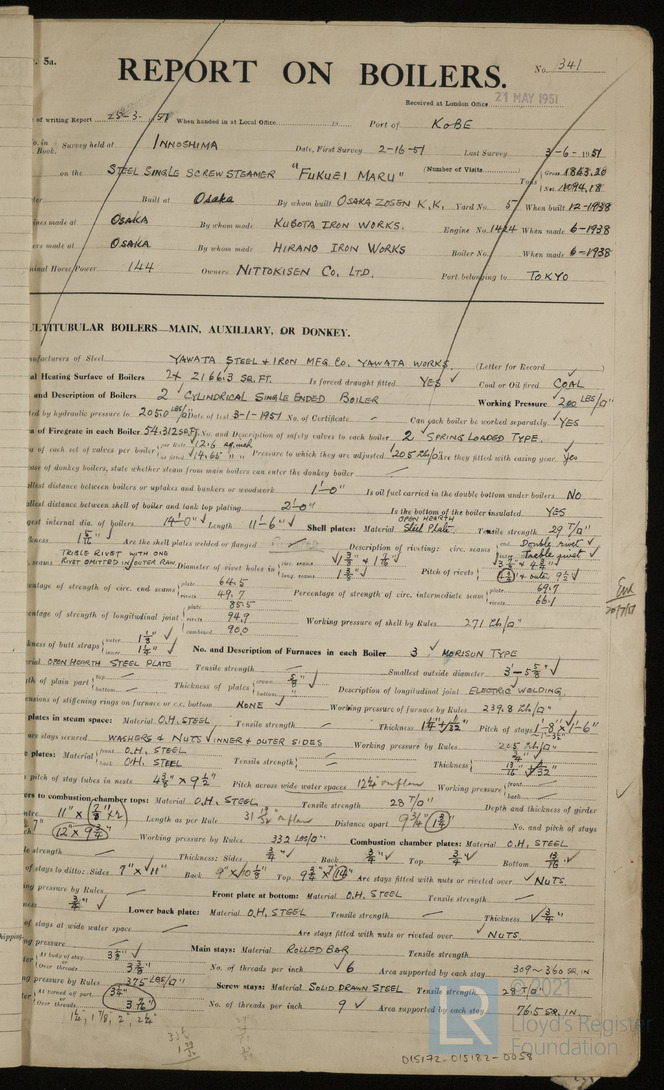 5a.
REPORT ON BOILERS.
No. 341
Received at London Office 21 MAY 1951
of writing Report 25-3-1951 When handed in at Local Office 19 Port of KOBE
in Book. Survey held at INNOSHIMA Date, First Survey 2-16-51 Last Survey 3-6-1951
on the STEEL SINGLE SCREW STEAMER "FUKUEI MARU" (Number of Visits) Tons Gross 1863.20
Net 1094.18
Built at Osaka By whom built OSAKA ZOSEN K.K. Yard No. 5 When built 12-1938
ines made at OSAKA By whom made KUBOTA IRON WORKS. Engine No. 1424 When made 6-1938
ers made at OSAKA By whom made HIRANO IRON WORKS Boiler No. When made 6-1938
minal Horse Power 144 Owners NITTOKISEN CO. LTD. Port belonging to TOKYO
ULTITUBULAR BOILERS—MAIN, AUXILIARY, OR DONKEY.
nufacturers of Steel YAWATA STEEL & IRON MFG. Co. YAWATA WORKS. (Letter for Record )
al Heating Surface of Boilers 2 × 2166.3 SQ.FT. Is forced draught fitted YES Coal or Oil fired COAL
and Description of Boilers 2 CYLINDRICAL SINGLE ENDED BOILER Working Pressure 200 LBS/□"
ted by hydraulic pressure to 205.0 LBS/□" Date of test 3-1-1951 No. of Certificate Can each boiler be worked separately YES
a of Firegrate in each Boiler 54.312 SQ.FT. No. and Description of safety valves to each boiler 2 SPRING LOADED TYPE.
a of each set of valves per boiler per Rule 12.6 sq. inch
as fitted 14.65 " " Pressure to which they are adjusted 205 Lb/□" Are they fitted with easing gear Yes
ase of donkey boilers, state whether steam from main boilers can enter the donkey boiler
llest distance between boilers or uptakes and bunkers or woodwork 1'-0" Is oil fuel carried in the double bottom under boilers NO
allest distance between shell of boiler and tank top plating 2'-0" Is the bottom of the boiler insulated YES
gest internal dia. of boilers 14'-0" Length 11'-6" Shell plates: Material OPEN HEARTH Steel Plate Tensile strength 29 T/□"
kness 1 5/16" Are the shell plates welded or flanged Description of riveting: circ. seams Double rivet
long. Treble rivet
seams TRIBLE RIVET WITH ONE RIVET OMITED IN OUTER RAW. Diameter of rivet holes in circ. seams 1 3/8" & 1 7/16"
long. seams 1 3/8" Pitch of rivets
centage of strength of circ. end seams plate 64.5
rivets 49.7 Percentage of strength of circ. intermediate seam plate 69.7
rivets 66.1
centage of strength of longitudinal joint plate 85.5
rivets 94.9
combined 90.0 Working pressure of shell by Rules 271 Lb/□"
kness of butt straps outer 1 1/8"
inner 1 1/4" No. and Description of Furnaces in each Boiler 3, MORISON TYPE
rial OPEN HEARTH STEEL PLATE Tensile strength Smallest outside diameter 3'-5 5/8"
gth of plain part top
bottom Thickness of plates crown 5/8"
bottom Description of longitudinal joint ELECTRIC WELDING.
ensions of stiffening rings on furnace or c.c. bottom NONE Working pressure of furnace by Rules 239.8 Lb/□"
plates in steam space: Material O.H. STEEL Tensile strength Thickness Pitch of stays 1'-8" × 1'-6"
are stays secured WASHERS & NUTS INNER & OUTER SIDES Working pressure by Rules 205 Lb/□"
plates: Material front O.H. STEEL
back O.H. STEEL Tensile strength Thickness
pitch of stay tubes in nests 4 3/8" × 9 1/2" Pitch across wide water spaces Working pressure front
back
ers to combustion chamber tops: Material O.H. STEEL Tensile strength 28 T/□" Depth and thickness of girder
ntre 11" × Length as per Rule Distance apart 9 3/4" No. and pitch of stays
12" × 9 3/4" Working pressure by Rules 332 LBS/□" Combustion chamber plates: Material O.H. STEEL
le strength Thickness: Sides 3/4" Back 3/4" Top 3/4" Bottom 13/16"
of stays to ditto: Sides 7" × 11" Back 9" × 10 1/8" Top Are stays fitted with nuts or riveted over NUTS.
ing pressure by Rules Front plate at bottom: Material O.H. STEEL Tensile strength
ness 3/4" Lower back plate: Material O.H. STEEL Tensile strength Thickness 3/4"
of stays at wide water space Are stays fitted with nuts or riveted over NUTS.
ng pressure Main stays: Material ROLLED BAR Tensile strength
At body of stay 3 3/8"
Over threads 3 3/8" No. of threads per inch 6 Area supported by each stay 309~360 SQ. IN
ng pressure by Rules 375 LBS/□" Screw stays: Material SOLID DRAWN STEEL Tensile strength 28 T/□"
At turned off part 3 1/4"
Over threads No. of threads per inch 9 Area supported by each stay 76.5 SQ. IN.
1 3/4", 1 7/8", 2", 2 1/4"
015172-015182-0058
© 2021
LR
Lloyd's Register
Foundation